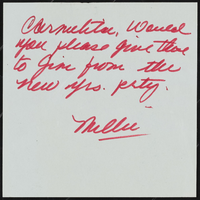 Carmelita, Would
you please give these
to Jim from the
new yrs. prty.
Millie